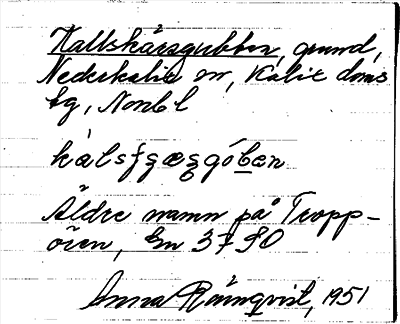 Hallskärsgubben, grund,
Nederkalix sn, Kalix doms
tg, Nonbl
kálsʃʒæʒgóbæn
Äldre namn på Tropp-
öien, En 3790
Anna Rönnqvist, 1951